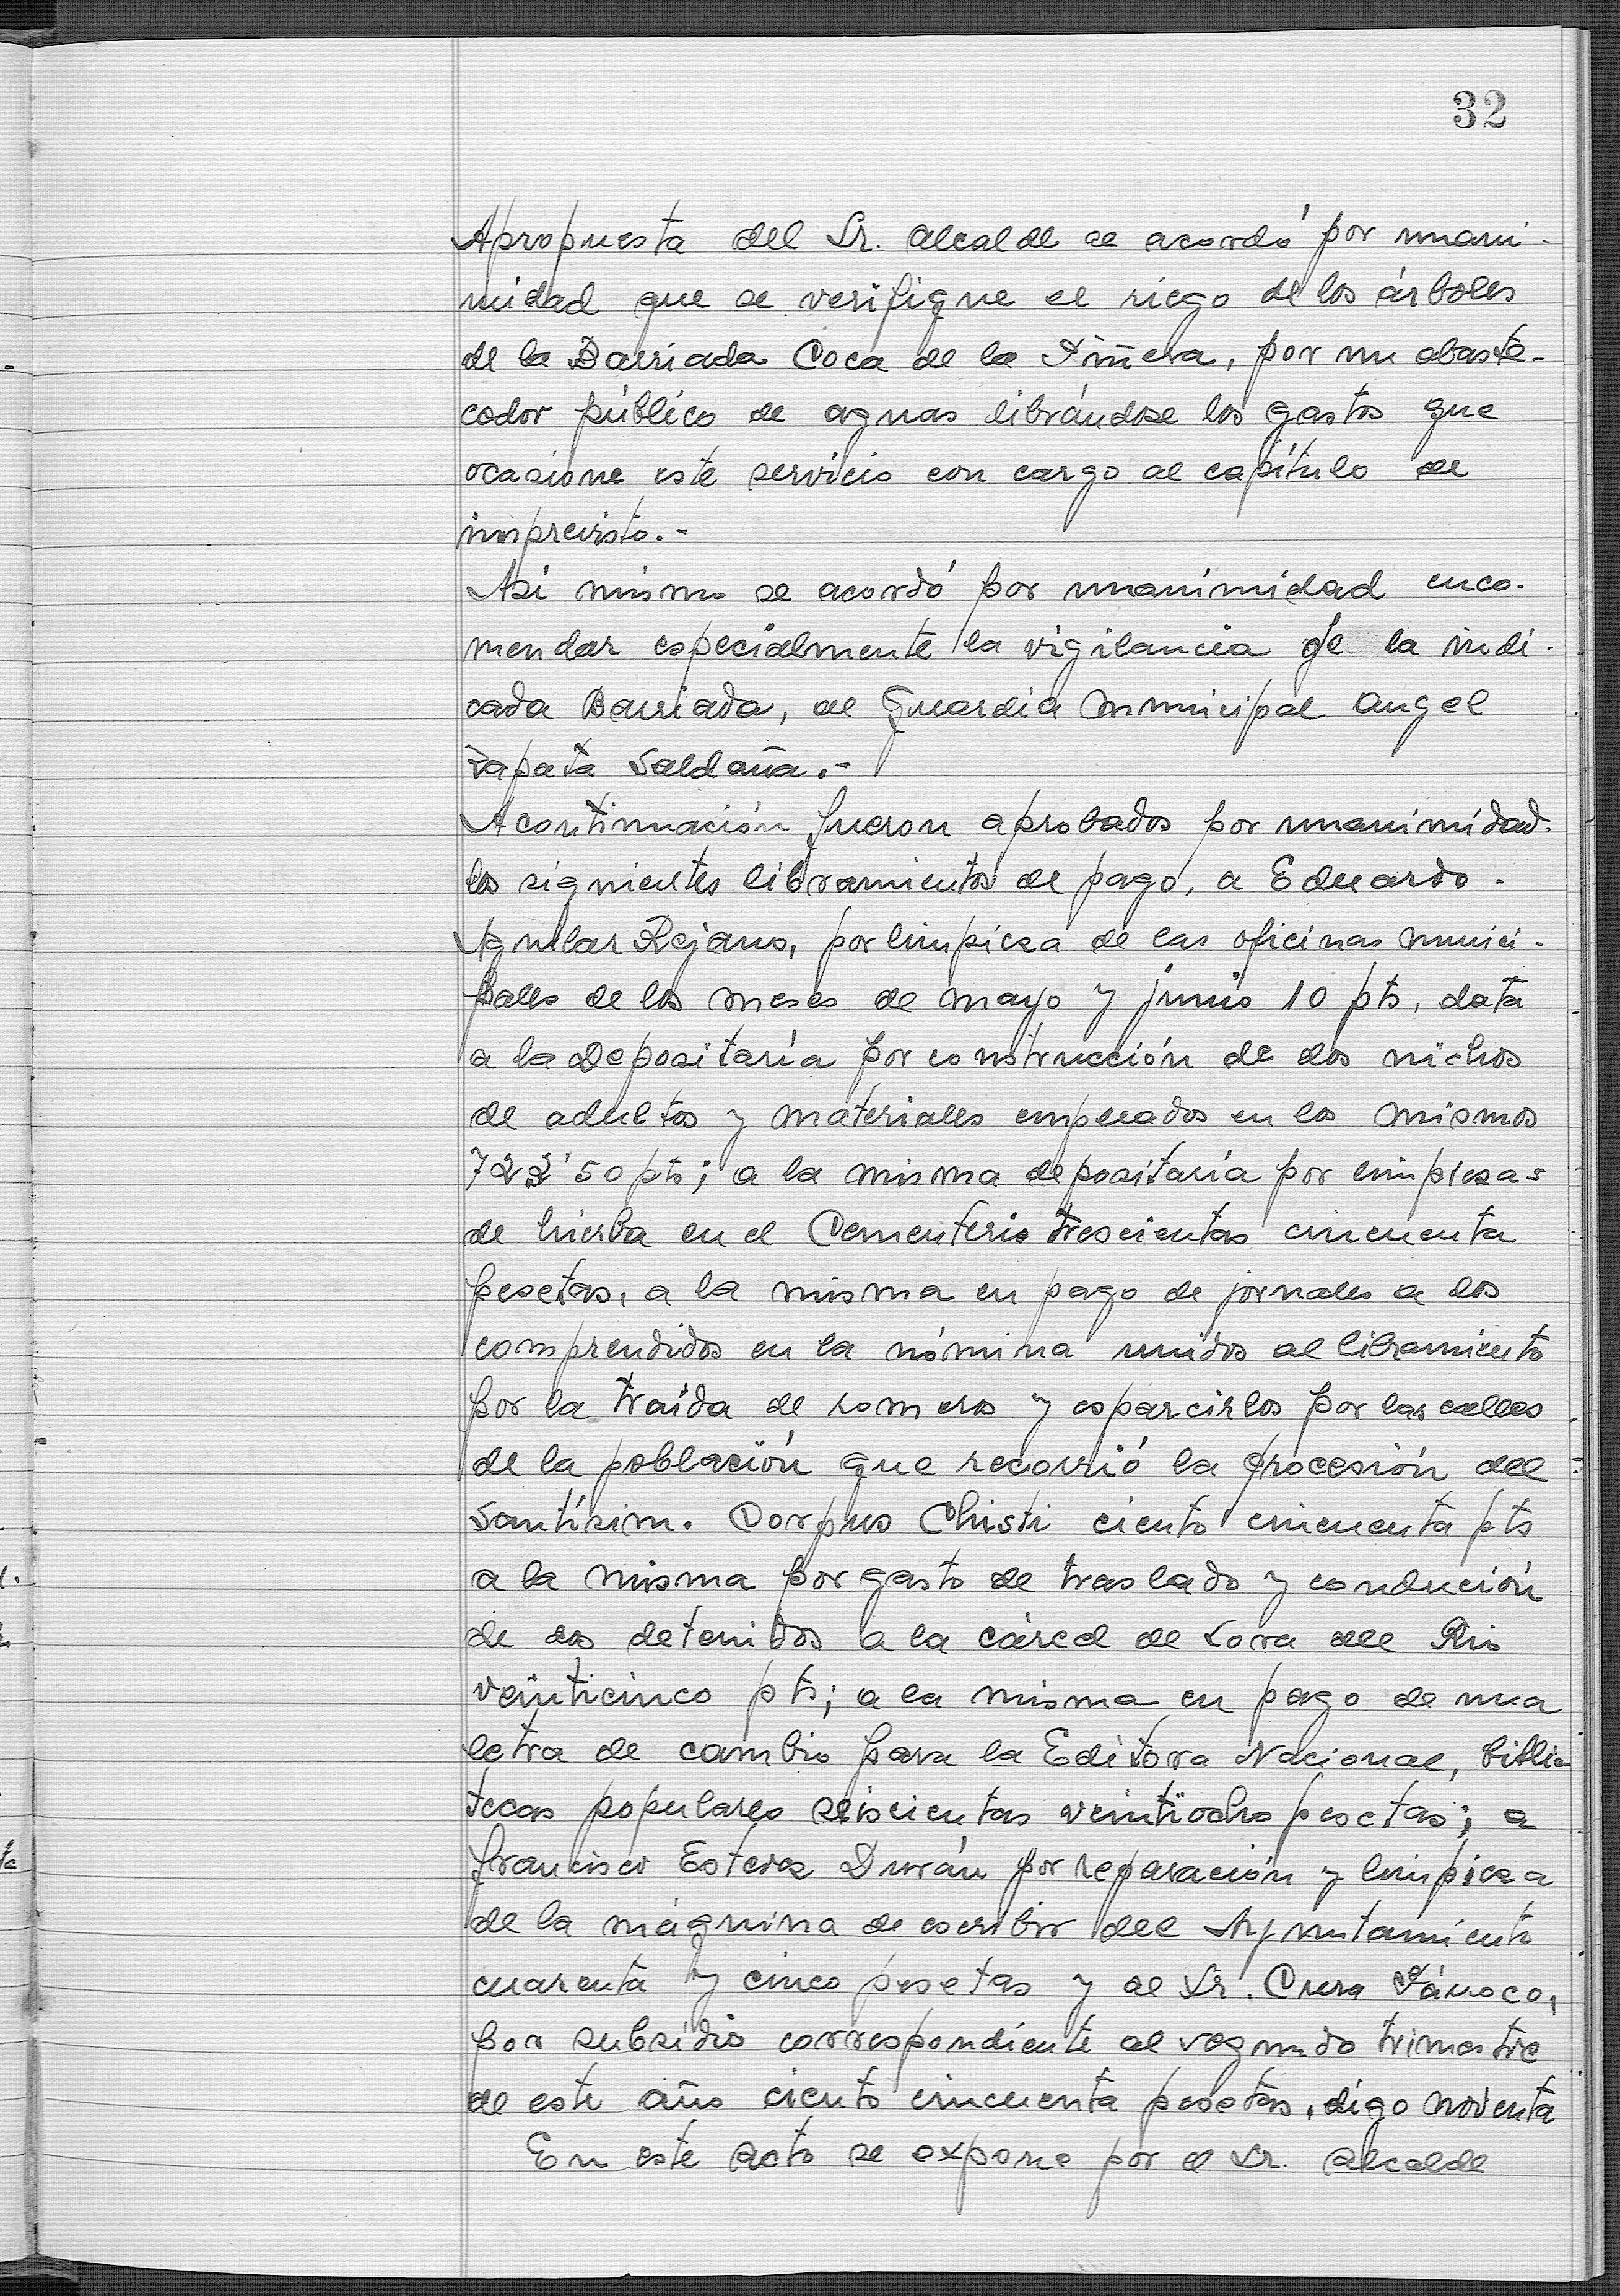 32
Apropuesta del Sr. Alcalde se acordó por unani-
midad que se verifique el riego de los árboles
de la Barriada Coca de la Piñera, por un abaste-
cedor público de aguas librándose los gastos que
ocasione este servicio con cargo al capítulo de
imprevisto.-
Asi mismo se acordó por unanimidad enco-
mendar especialmente la vigilancia de la indi-
cada Barriada, al Guardia Municipal Angel
Zapata Saldaña.-
Acontinuación fueron aprobados por unanimidad
los siguientes libramientos de pago, a Eduardo
Aguilar Rejano, por limpieza de las oficinas munici-
pales de los meses de mayo y junio 10 pts, data
a la Depositaría por construcción de dos nichos
de adultos y materiales empleados en los mismos
722'50 pts; a la misma depositaría por limpiezas
de hierba en el Cementerio trescientas cincuenta
pesetas, a la misma en pago de jornales a los
comprendidos en la nómina unidos al libramiento
por la traída de romeros y esparcirlos por las calles
de la población que recorrió la procesión del
Santísim. Corpus Christi ciento cincuenta pts
a la misma por gasto de traslado y condución
de dos detenidos a la cárcel de Lora del Rio
veinticinco pts; a la misma en pago de una
letra de cambio para la Editora Nacional, biblio
tecas populares seiscientas veintiocho pesetas; a
Francisco Estevez Durán por reparación y limpieza
de la máquina de escribir del Ayuntamiento
cuarenta y cinco pesetas y al Sr. Cura Párroco,
por subsidio correspondiente al segundo trimestre
de este año ciento cincuenta pesetas, digo noventa
En este acto se expone por el Sr. Alcalde